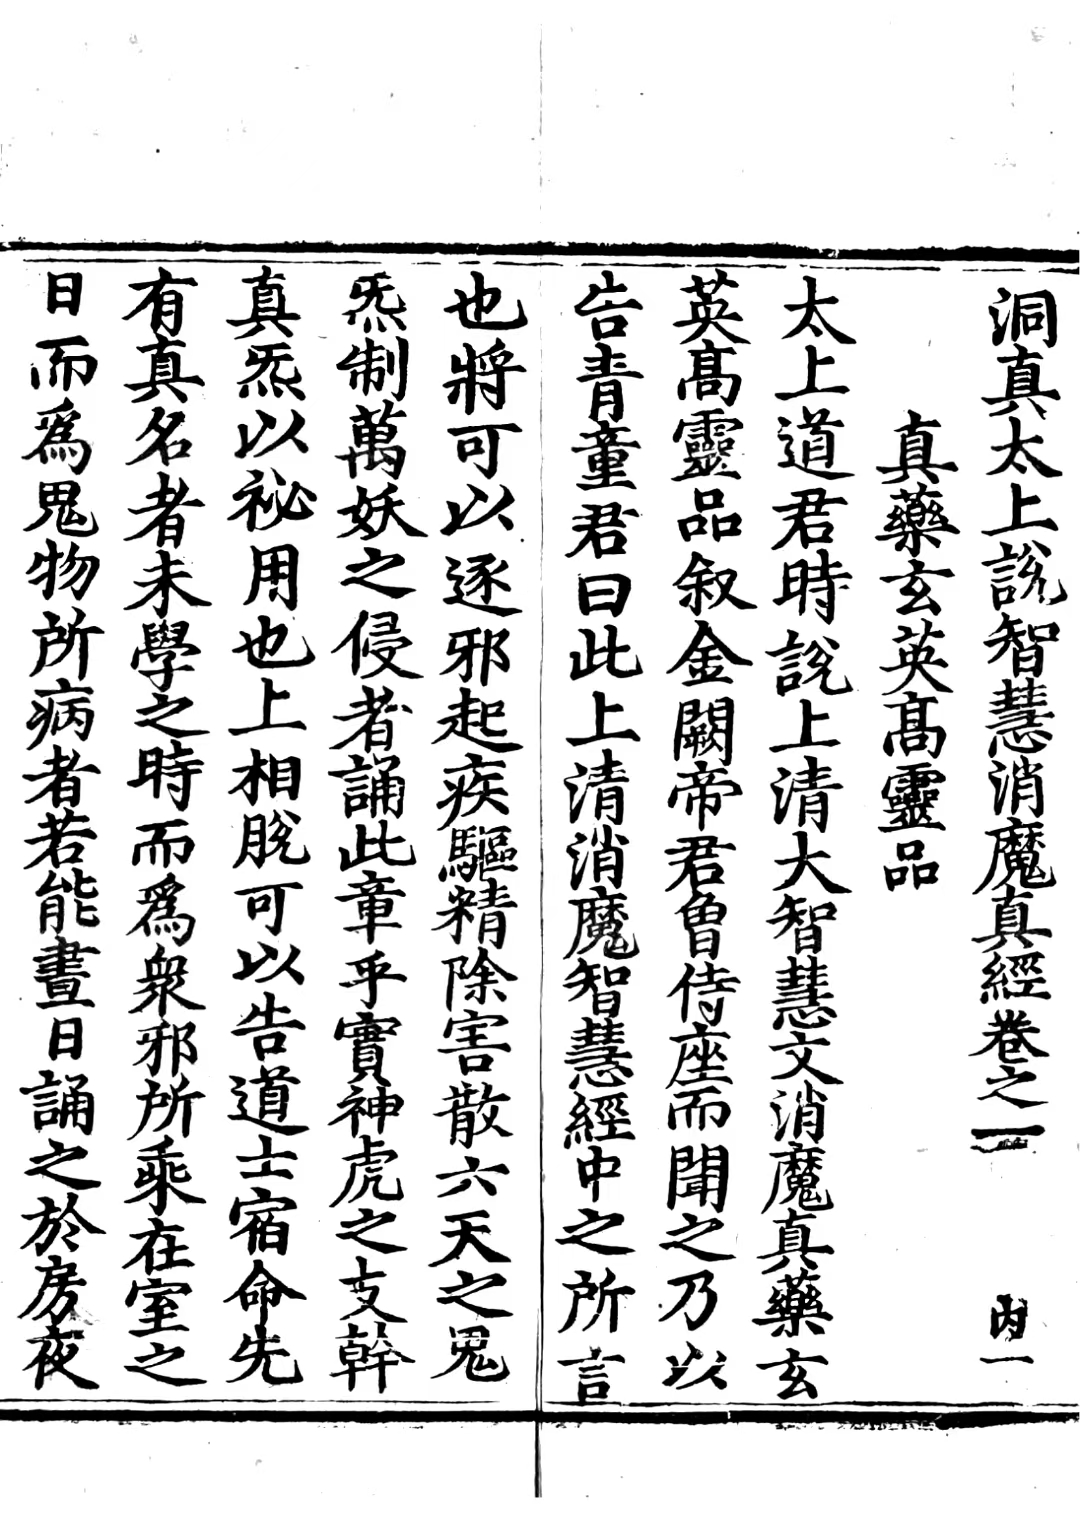 洞真太上說智慧消魔真經卷之一 内一
真藥玄英高靈品
太上道君時說上清大智慧文消魔真藥玄
英高靈品叙金闕帝君曾侍座而聞之乃以
告青童君曰此上清消魔智慧經中之所言
也將可以逐邪起疾驅精除害散六天之鬼
炁制萬妖之侵者誦此章乎實神虎之支幹
真炁以祕用也上相脫可以告道士宿命先
有真名者未學之時而爲衆邪所乘在室之
日而爲鬼物所病者若能晝日誦之於房夜